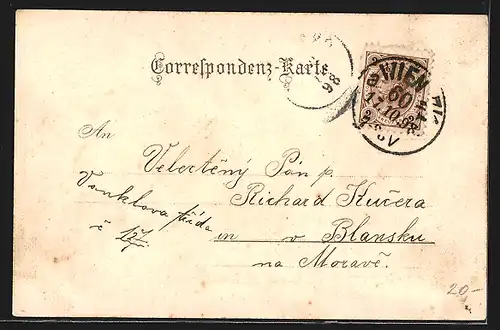 Correspondenz-Karte
WIEN
60
17.10.98
An
Velectěný Pán p.
Richard Kučera
Vanklova třída
č
in v Blansku
na Moravě.
20-